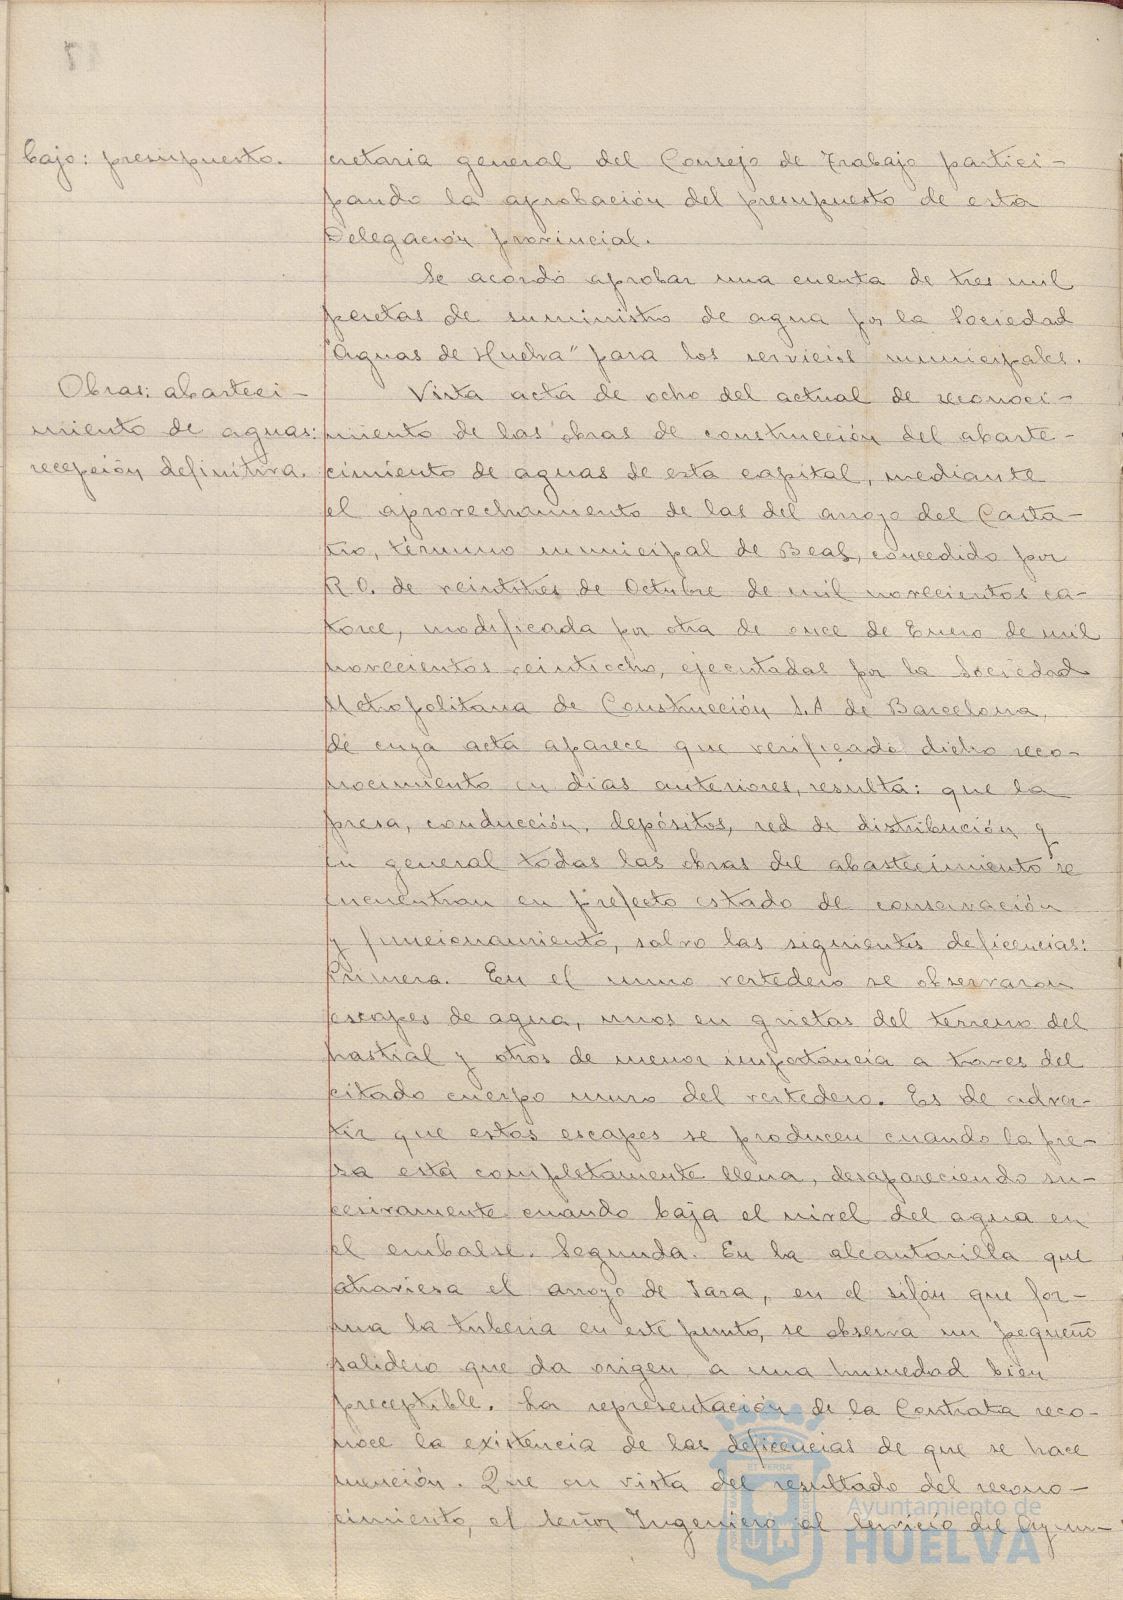 bajo: presupuesto.
cretaria general del Consejo de Trabajo partici-
pando la aprobación del presupuesto de esta
Delegación provincial.
Se acordó aprobar una cuenta de tres mil
pesetas de suministro de agua por la Sociedad
"Aguas de Huelva" para los servicios municipales.
Obras: abasteci-
miento de aguas:
recepción definitiva.
Vista acta de ocho del actual de reconoci-
miento de las obras de construcción del abaste-
cimiento de aguas de esta capital, mediante
el aprovechamento de las del arroyo del Casta-
ño, término municipal de Beas, concedido por
R.O. de veintitres de Octubre de mil novecientos ca-
torce, modificada por otra de once de Enero de mil
novecientos veintiocho, ejecutadas por la Sociedad
Metropolitana de Construcción S.A de Barcelona,
de cuya acta aparece que verificado dicho reco-
nocimiento en dias anteriores, resulta: que la
presa, conducción, depósitos, red de distribución y
en general todas las obras del abastecimiento se
encuentran en prefecto estado de conservación
y funcionamiento, salvo las siguientes deficencias:
Primera. En el muro vertedero se observaron
escapes de agua, unos en grietas del terreno del
hastial y otros de menor importancia a traves del
citado cuerpo muro del vertedero. Es de adver-
tir que estos escapes se producen cuando la pre-
sa está completamente llena, desapareciendo su-
cesivamente cuando baja el nivel del agua en
el embalse. Segunda. En la alcantarilla que
atraviesa el arroyo de Tara, en el sifón que for-
ma la tuberia en este punto, se observa un pequeño
salidero que da origen a una humedad bien
preceptible. La representación de la Contrata reco-
noce la existencia de las deficencias de que se hace
mención. Que en vista del resultado del recono-
cimiento, el señor Ingeniero al servicio del Ayun-
Ayuntamiento de
HUELVA